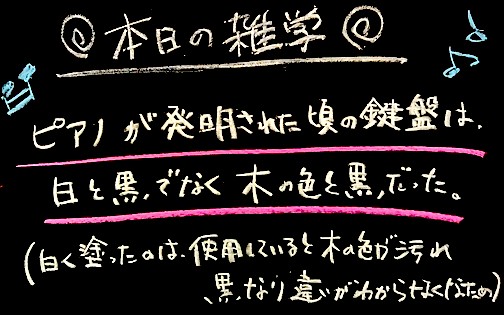 ◎本日の雑学◎
ピアノが発明された頃の鍵盤は、
白と黒、でなく木の色と黒、だった。
(白く塗ったのは、使用していると木の色が汚れ
黒くなり違いがわからなくなるため)